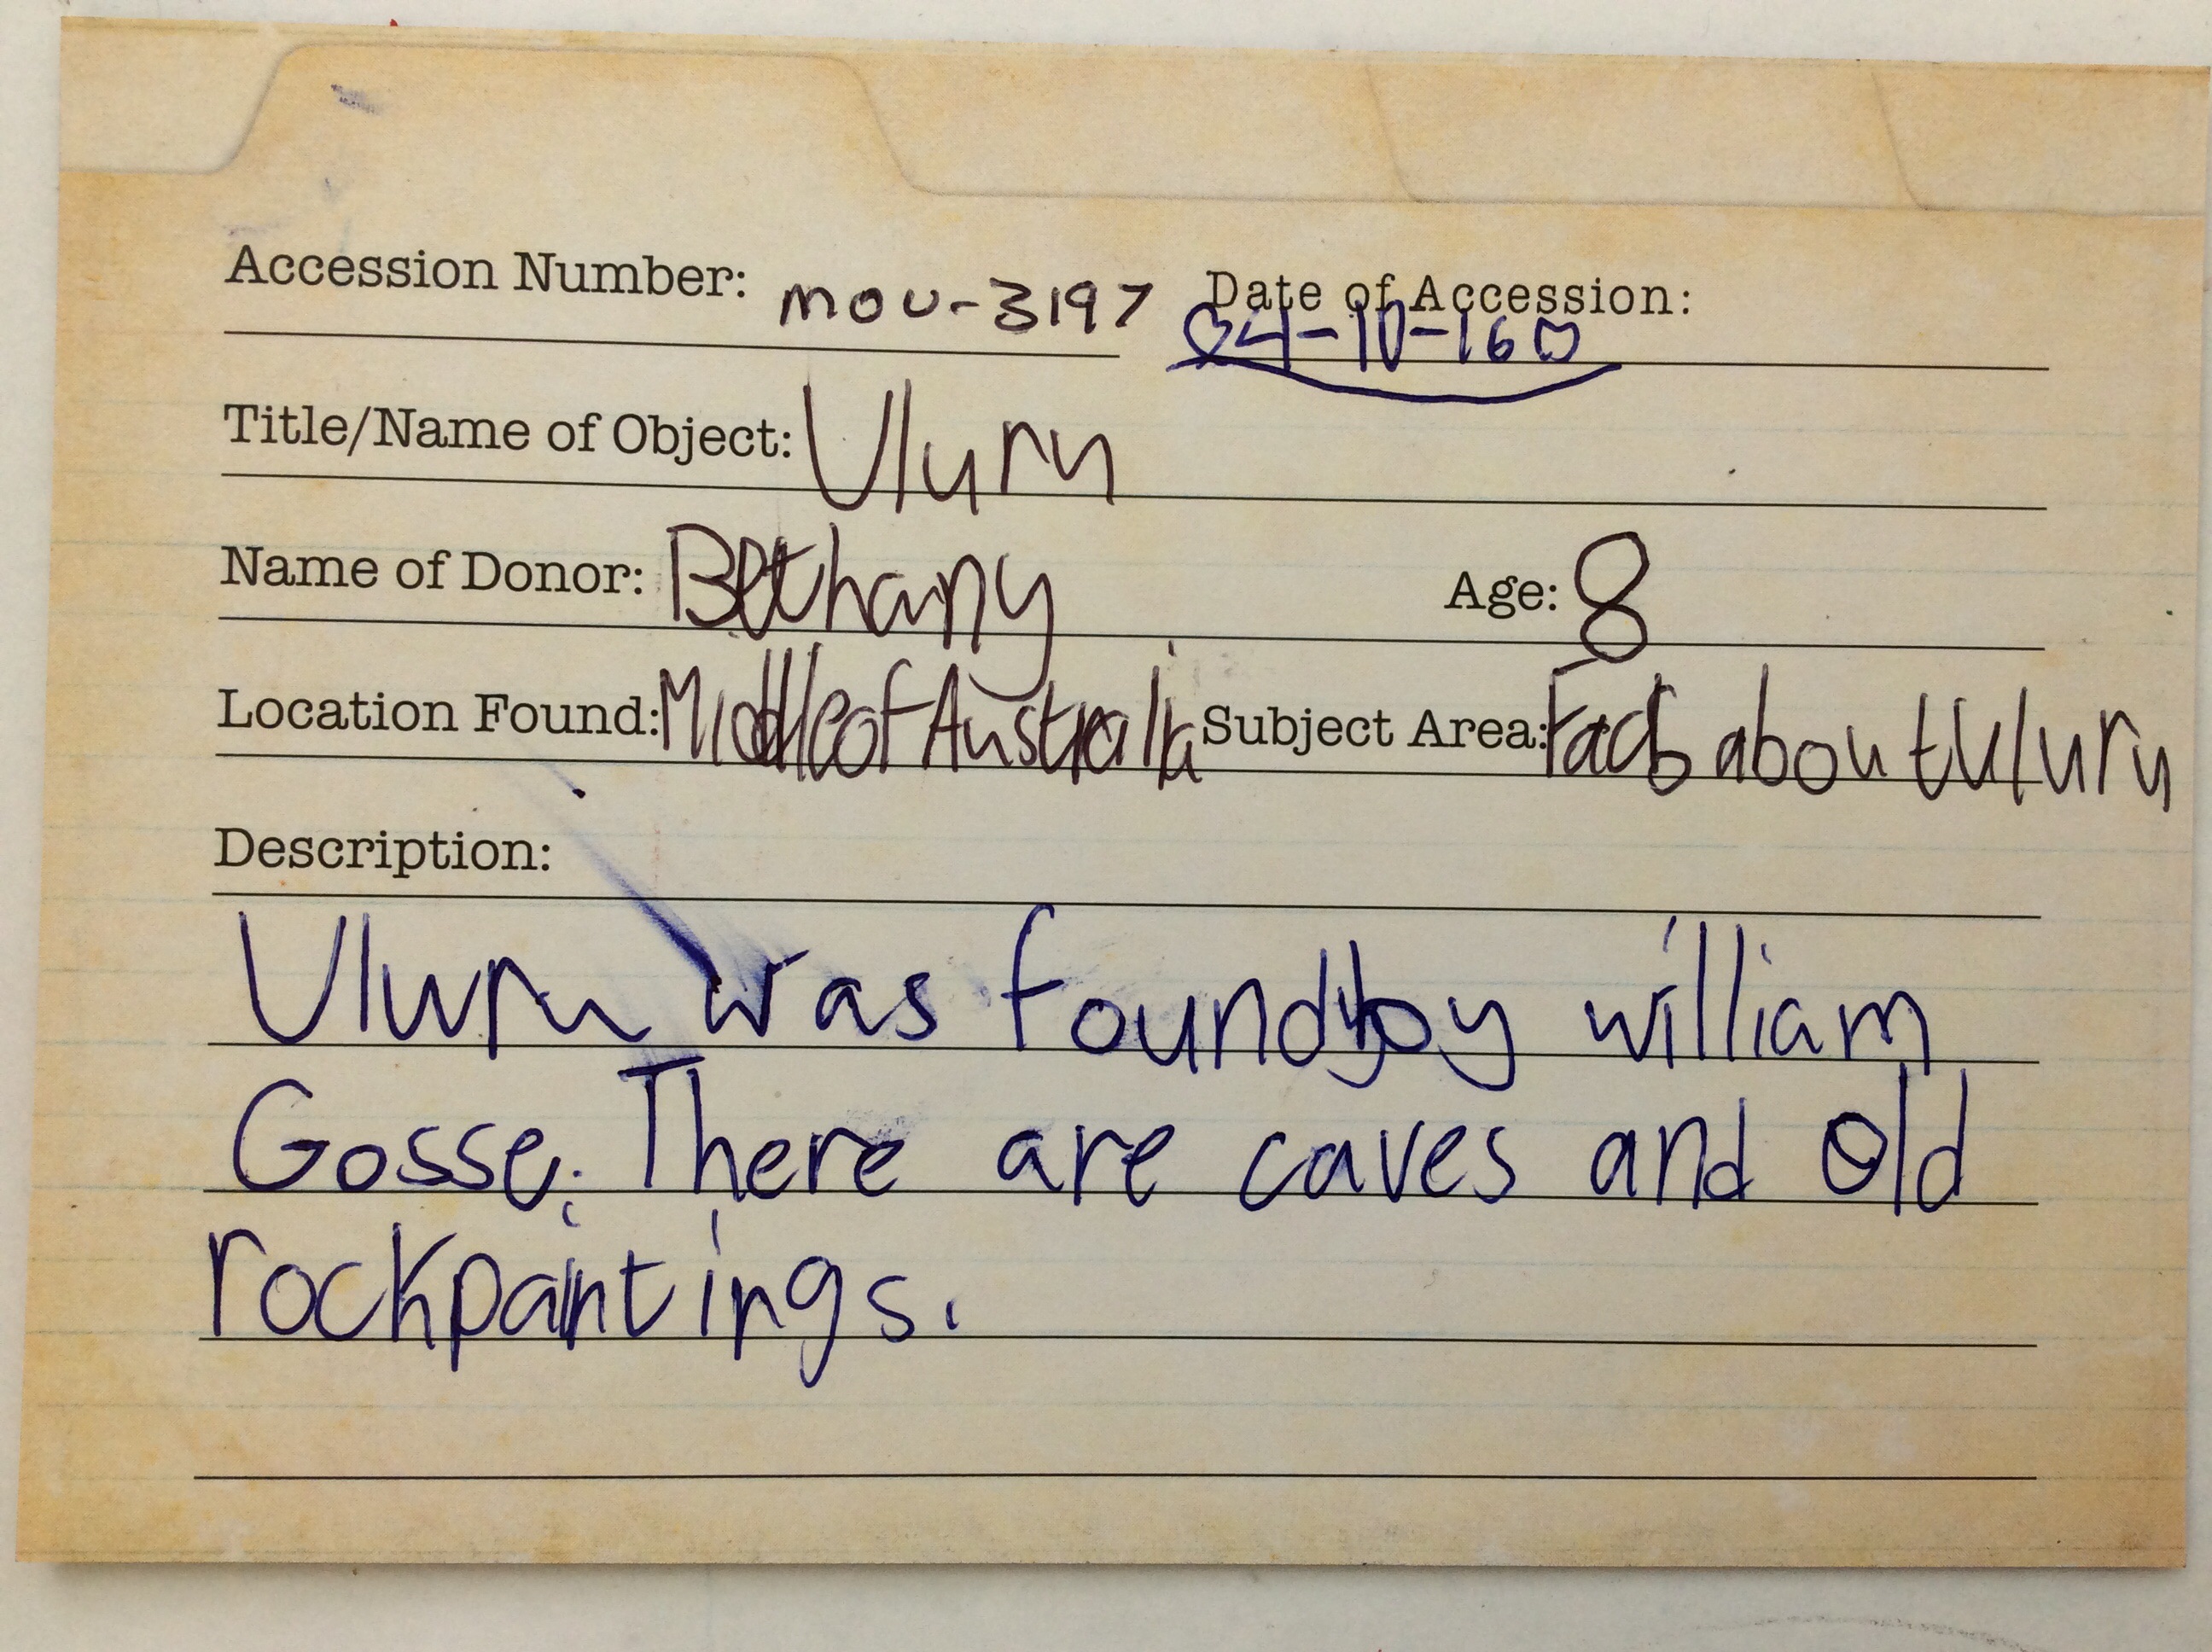 Accession Number: mou-3197 Date of Accession: ♡4-10-16♡
Title/Name of Object: Uluru
Name of Donor: Bethany Age: 8
Location Found: Middle of Australia Subject Area: Facts about Uluru
Description:
Uluru was found by william
Gosse. There are caves and old
rock paintings.